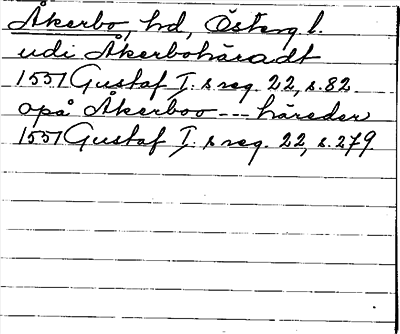 Åkerbo, hd, Österg l.
udi Åkerbohäradt
1551 Gustaf I. s reg. 22, s. 82
opå Åkerboo --- häreder
1551 Gustaf I. s reg. 22, s. 279.